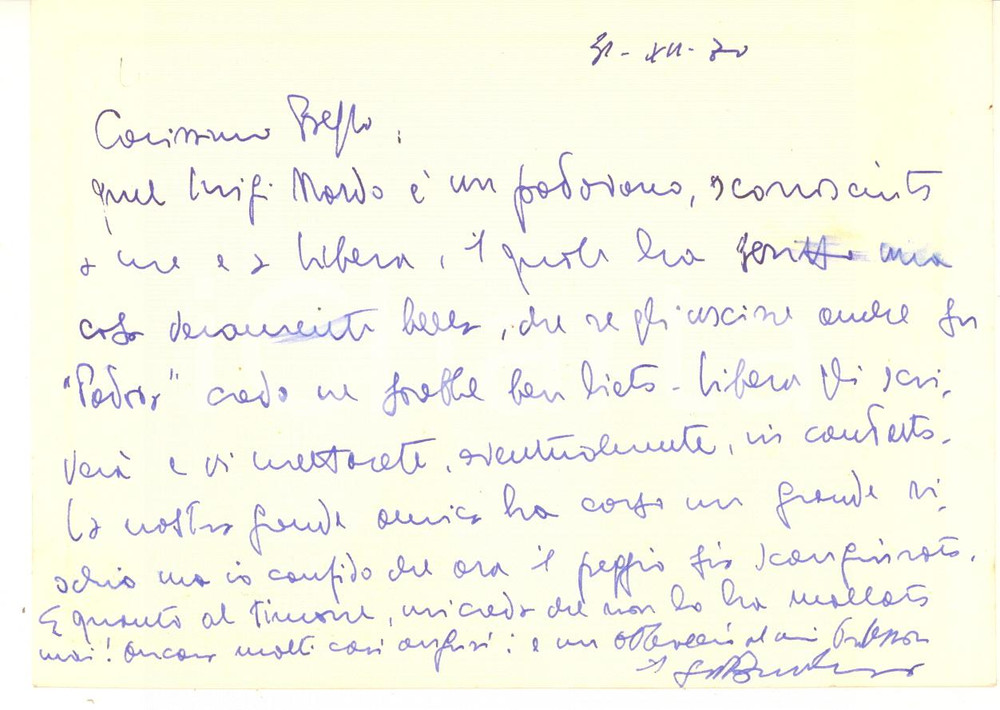 31-XII-70
Carissimo Beppo,
quel Luigi Nardo è un padovano, sconosciuto
a me e a Libera, il quale ha scritto una
cosa veramente bella, che se gli uscisse anche su
"Padova" credo ne sarebbe ben lieto. Libera gli scri-
verà e vi metterete, eventualmente, in contatto.
La nostra grande amica ha corso un grande ri-
schio ma io confido che ora il peggio sia scongiurato.
E quanto al timone, mi creda che non lo ha mollato
mai! Ancora molti cari auguri: e un al mio